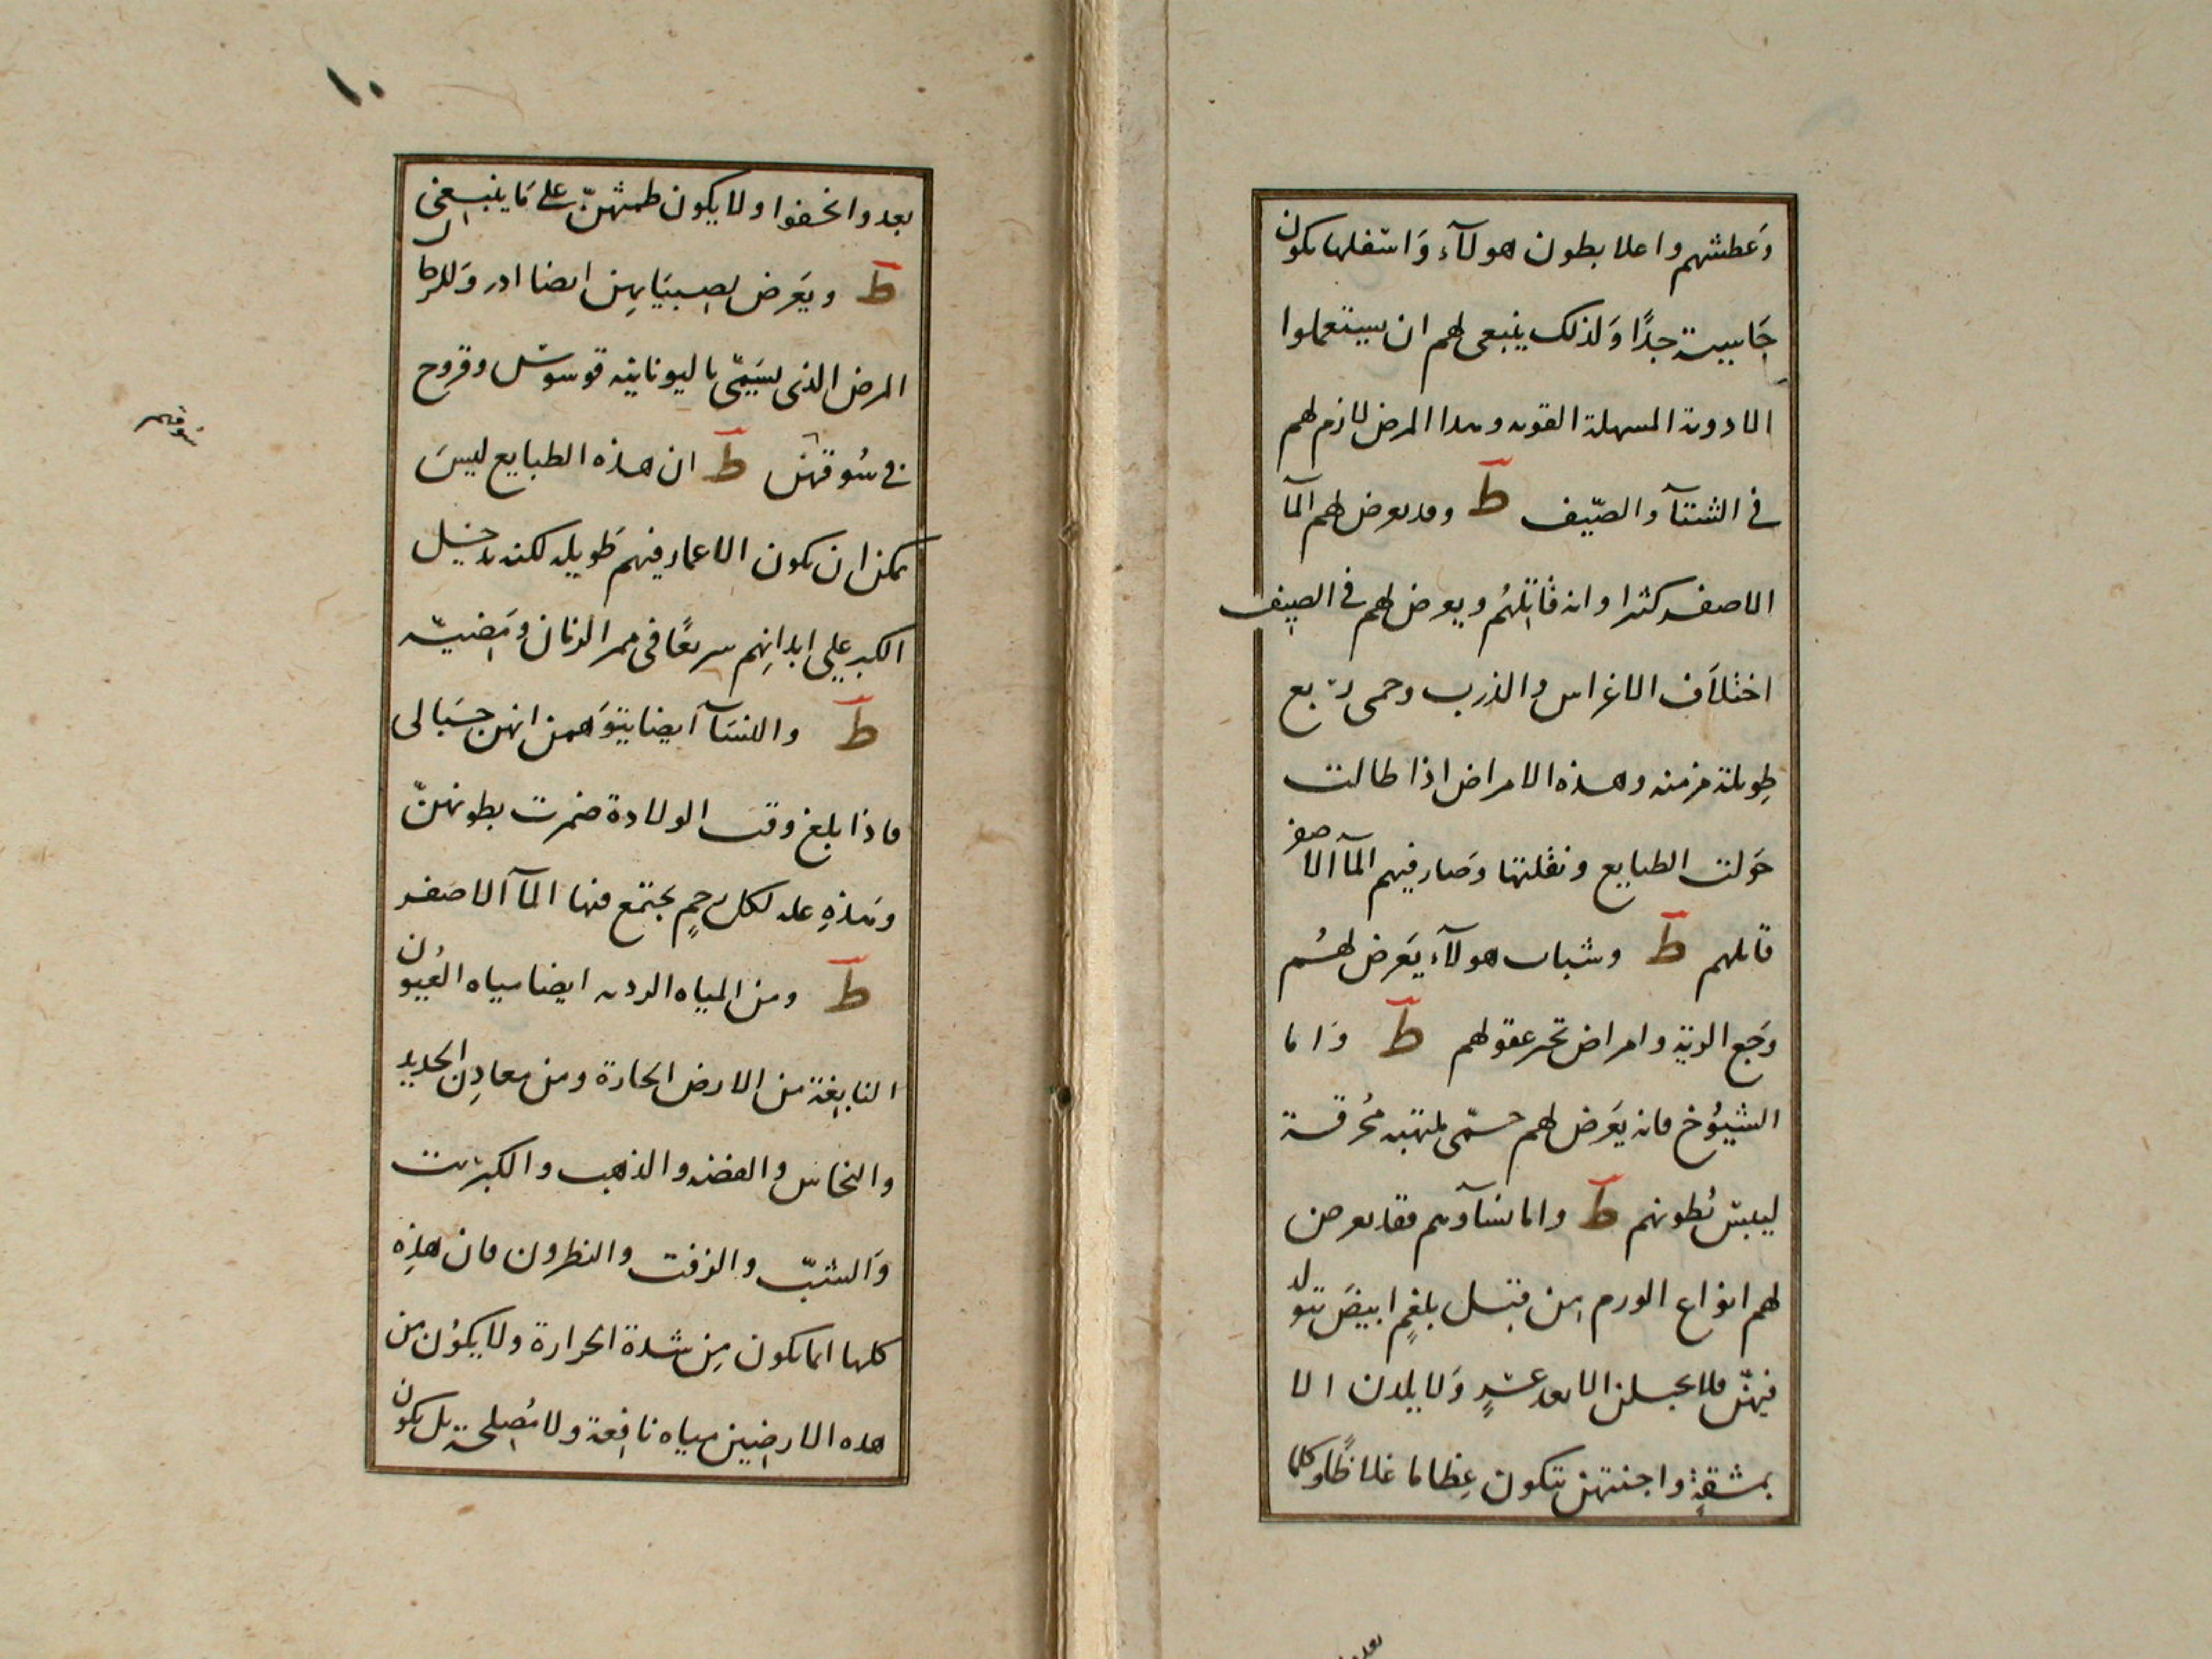 وَعطشهم واعلا بطون هولآء وَاسفلها تكون
جَاسية جدًا وَلذلك ينبغى لهم ان يستعملوا
الادوية المسهلة القوية وهذا المرض لازم لهم
فى الشتآ والصّيف ط وقد يعرض لهم المآ
الاصفر كثيرا وانه قاتلهُم ويعرض لهم فى الصيف
اختلاَف الاغراس والذرب وحمى ربع
طويلة مزمنه وهذه الامراض اذا طالت
حَولت الطبايع ونقلتها وصَار فيهم المآ الاصفر
قاتلهم ط وشباب هولآء يَعرض لهُم
وَجع الرية وامراض تحير عقولهم ط وَاما
الشيُوخ فانه يَعرض لهم حمّى ملتهبه مُحرقة
ليبس بُطونهم ط واما نسآوهم فقد يعرض
لهم انواع الورم مِن قبل بلغمٍ ابيضَ يتولد
فيهنّ فلا يحبلن الا بعد عسرٍ وَلا يلدن الا
بمشقةٍ واجنتهن تتكون عِظاما غلاظًا وكلما
١٠
بعد وانخفوا ولا يكون طمثهنّ على مَا ينبغى
ط ويَعرض لصبيَانهِن ايضا ادر وَللرجال
المرض الذى يسَمّى باليونانيه قوسوس وقروح
فى سُوقهن ط ان هذه الطبايع ليسَ
يمكن ان تكون الاعمار فيهم طَويله لكنه يدخل
الكبر على ابدانِهم سريعًا فى ممر الزمان ومَضيّه
ط والنسَآ ايضا يتوَهمن انهن حبَالى
فاذا بلغ وقت الولادة ضمرت بطونهنّ
وهَذهِ عله لكل رحمٍ يجتمع فيها المآ الاصفر
ط ومن المياه الرديه ايضا مياه العُيُون
النابغة من الارض الحارة ومن معادِن الحديد
والنحاس والفضه والذهب والكبريت
وَالشبّ والزفت والنطرون فان هذِه
كلها انما تكون مِن شدة الحرارة ولا يكوُن من
هذه الارضين مياه نافعة ولا مُصلحة بل يكون
سوقهم